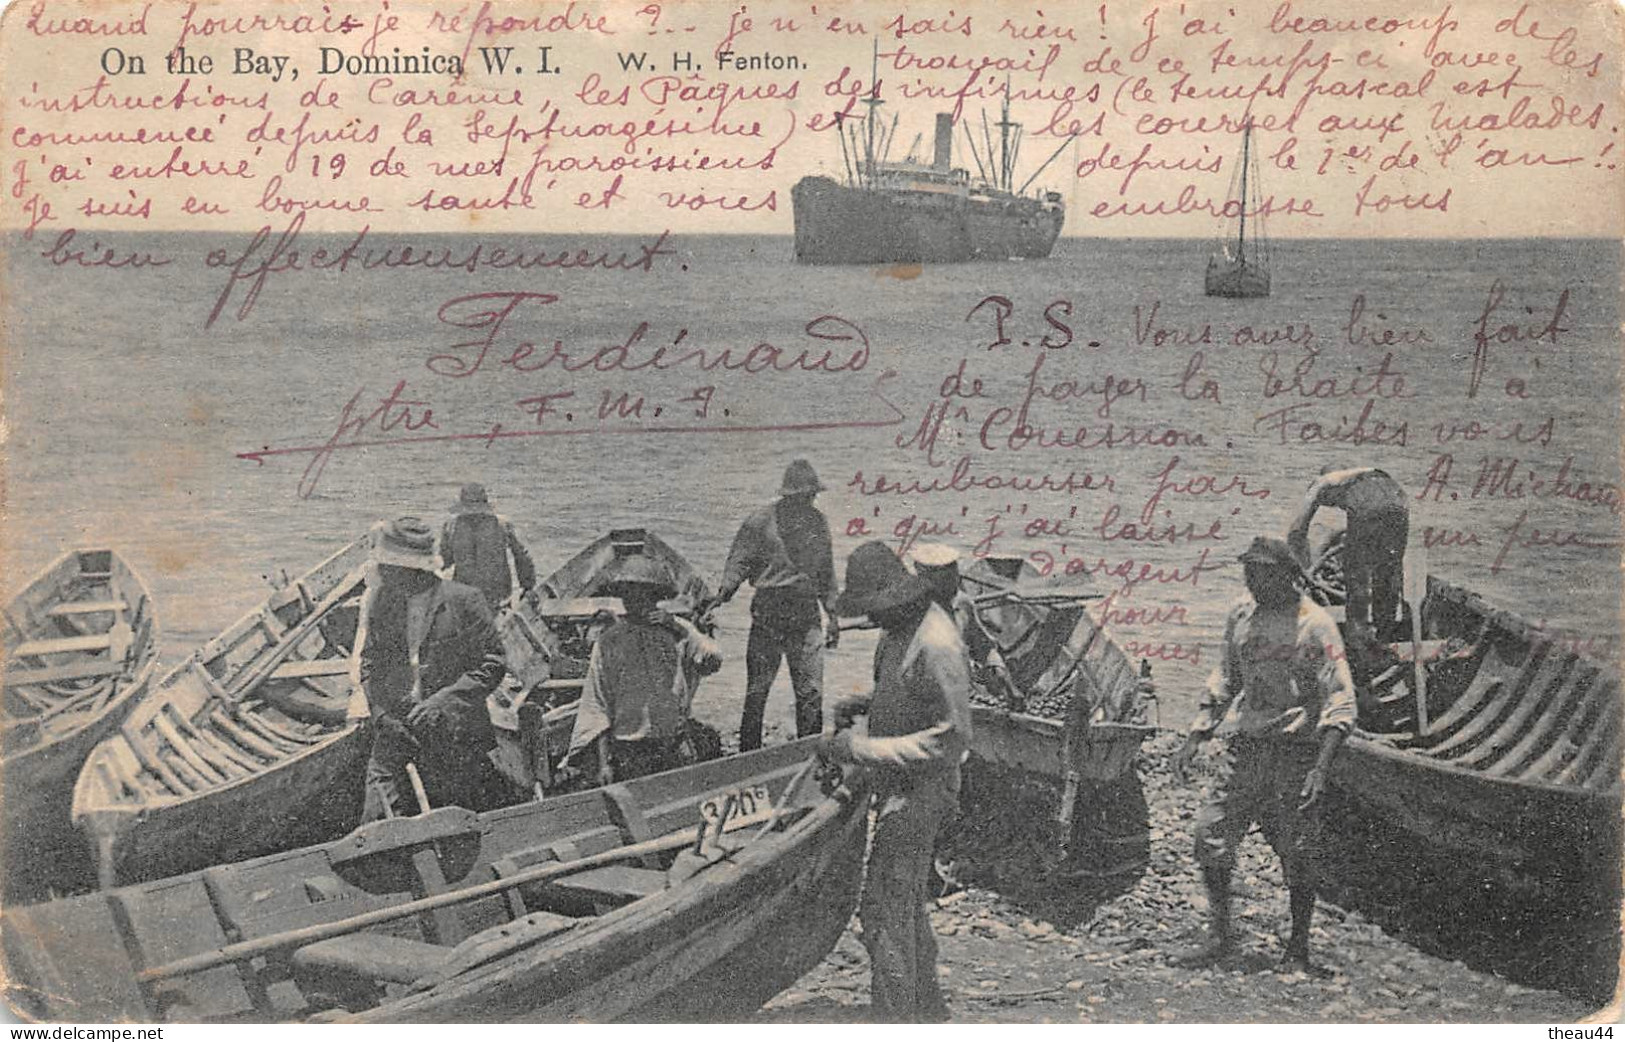 Quand pourrais-je répondre ?... je n'en sais rien ! J'ai beaucoup de
On the Bay, Dominica W. I. W. H. Fenton.
travail de ce temps-ci avec les
instructions de Carême, les Pâques des infirmes (le temps pascal est
commencé depuis la Septuagésime) et les courses aux malades.
J'ai enterré 19 de mes paroissiens depuis le 1er de l'an !
Je suis en bonne santé et vous embrasse tous
bien affectueusement.
Ferdinand
ptre, F. M. I.
P.S. Vous avez bien fait
de payer la traite à
Mr Couesnon. Faites vous
rembourser par A. Michaud
à qui j'ai laissé un peu
d'argent
pour
mes
theau44